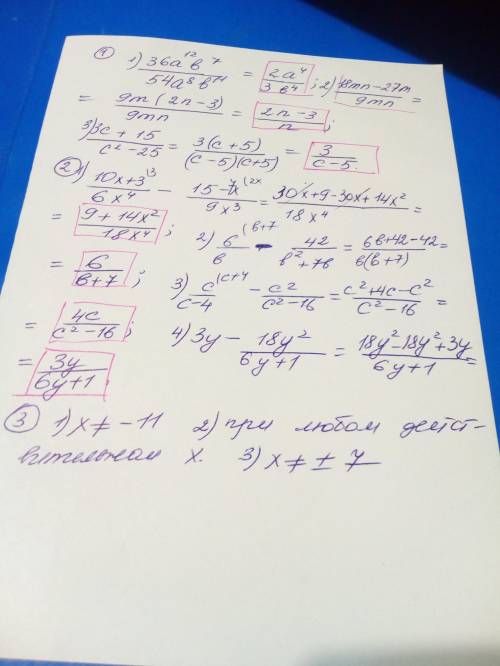 ① 1) 36a¹²b⁷ / 54a⁸b¹¹ = 2a⁴ / 3b⁴ ; 2) 18mn-27m / 9mn =
= 9m(2n-3) / 9mn = 2n-3 / n ;
3) 3c+15 / c²-25 = 3(c+5) / (c-5)(c+5) = 3 / c-5 .
② 1) 10x+3⁽³ / 6x⁴ - 15-7x⁽²ˣ / 9x³ = 30x+9-30x+14x² / 18x⁴ =
= 9+14x² / 18x⁴ ; 2) 6⁽ᵇ⁺⁷ / b - 42 / b²+7b = 6b+42-42 / b(b+7) =
= 6 / b+7 ; 3) c⁽ᶜ⁺⁴ / c-4 - c² / c²-16 = c²+4c-c² / c²-16 =
= 4c / c²-16 ; 4) 3y - 18y² / 6y+1 = 18y²-18y²+3y / 6y+1 =
= 3y / 6y+1
③ 1) x ≠ -11 2) при любом дейст-
вительном x. 3) x ≠ ± 7